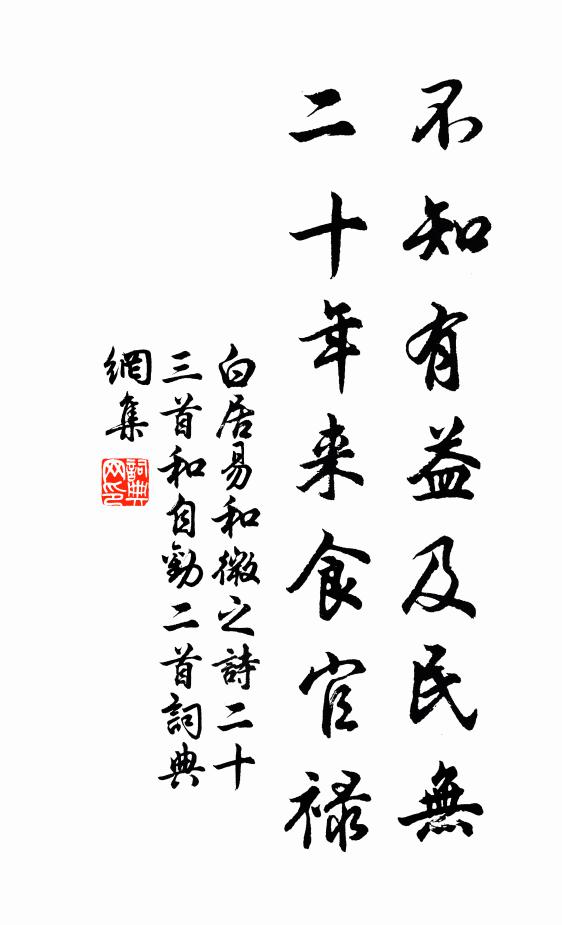 不知有益及民無
二十年来食官禄
白居易和微之詩二十
三首和自勸二首詞典
網集
詞典
网印